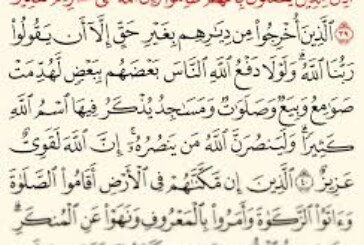 ٣٩ ٱلَّذِينَ أُخْرِجُوا۟ مِن دِيَٰرِهِم بِغَيْرِ حَقٍّ إِلَّآ أَن يَقُولُوا۟
رَبُّنَا ٱللَّهُ ۗ وَلَوْلَا دَفْعُ ٱللَّهِ ٱلنَّاسَ بَعْضَهُم بِبَعْضٍ لَّهُدِّمَتْ
صَوَٰمِعُ وَبِيَعٌ وَصَلَوَٰتٌ وَمَسَٰجِدُ يُذْكَرُ فِيهَا ٱسْمُ ٱللَّهِ
كَثِيرًا ۗ وَلَيَنصُرَنَّ ٱللَّهُ مَن يَنصُرُهُۥٓ ۗ إِنَّ ٱللَّهَ لَقَوِىٌّ
عَزِيزٌ ٤٠ ٱلَّذِينَ إِن مَّكَّنَّٰهُمْ فِى ٱلْأَرْضِ أَقَامُوا۟ ٱلصَّلَوٰةَ
وَءَاتَوُا۟ ٱلزَّكَوٰةَ وَأَمَرُوا۟ بِٱلْمَعْرُوفِ وَنَهَوْا۟ عَنِ ٱلْمُنكَرِ ۗ